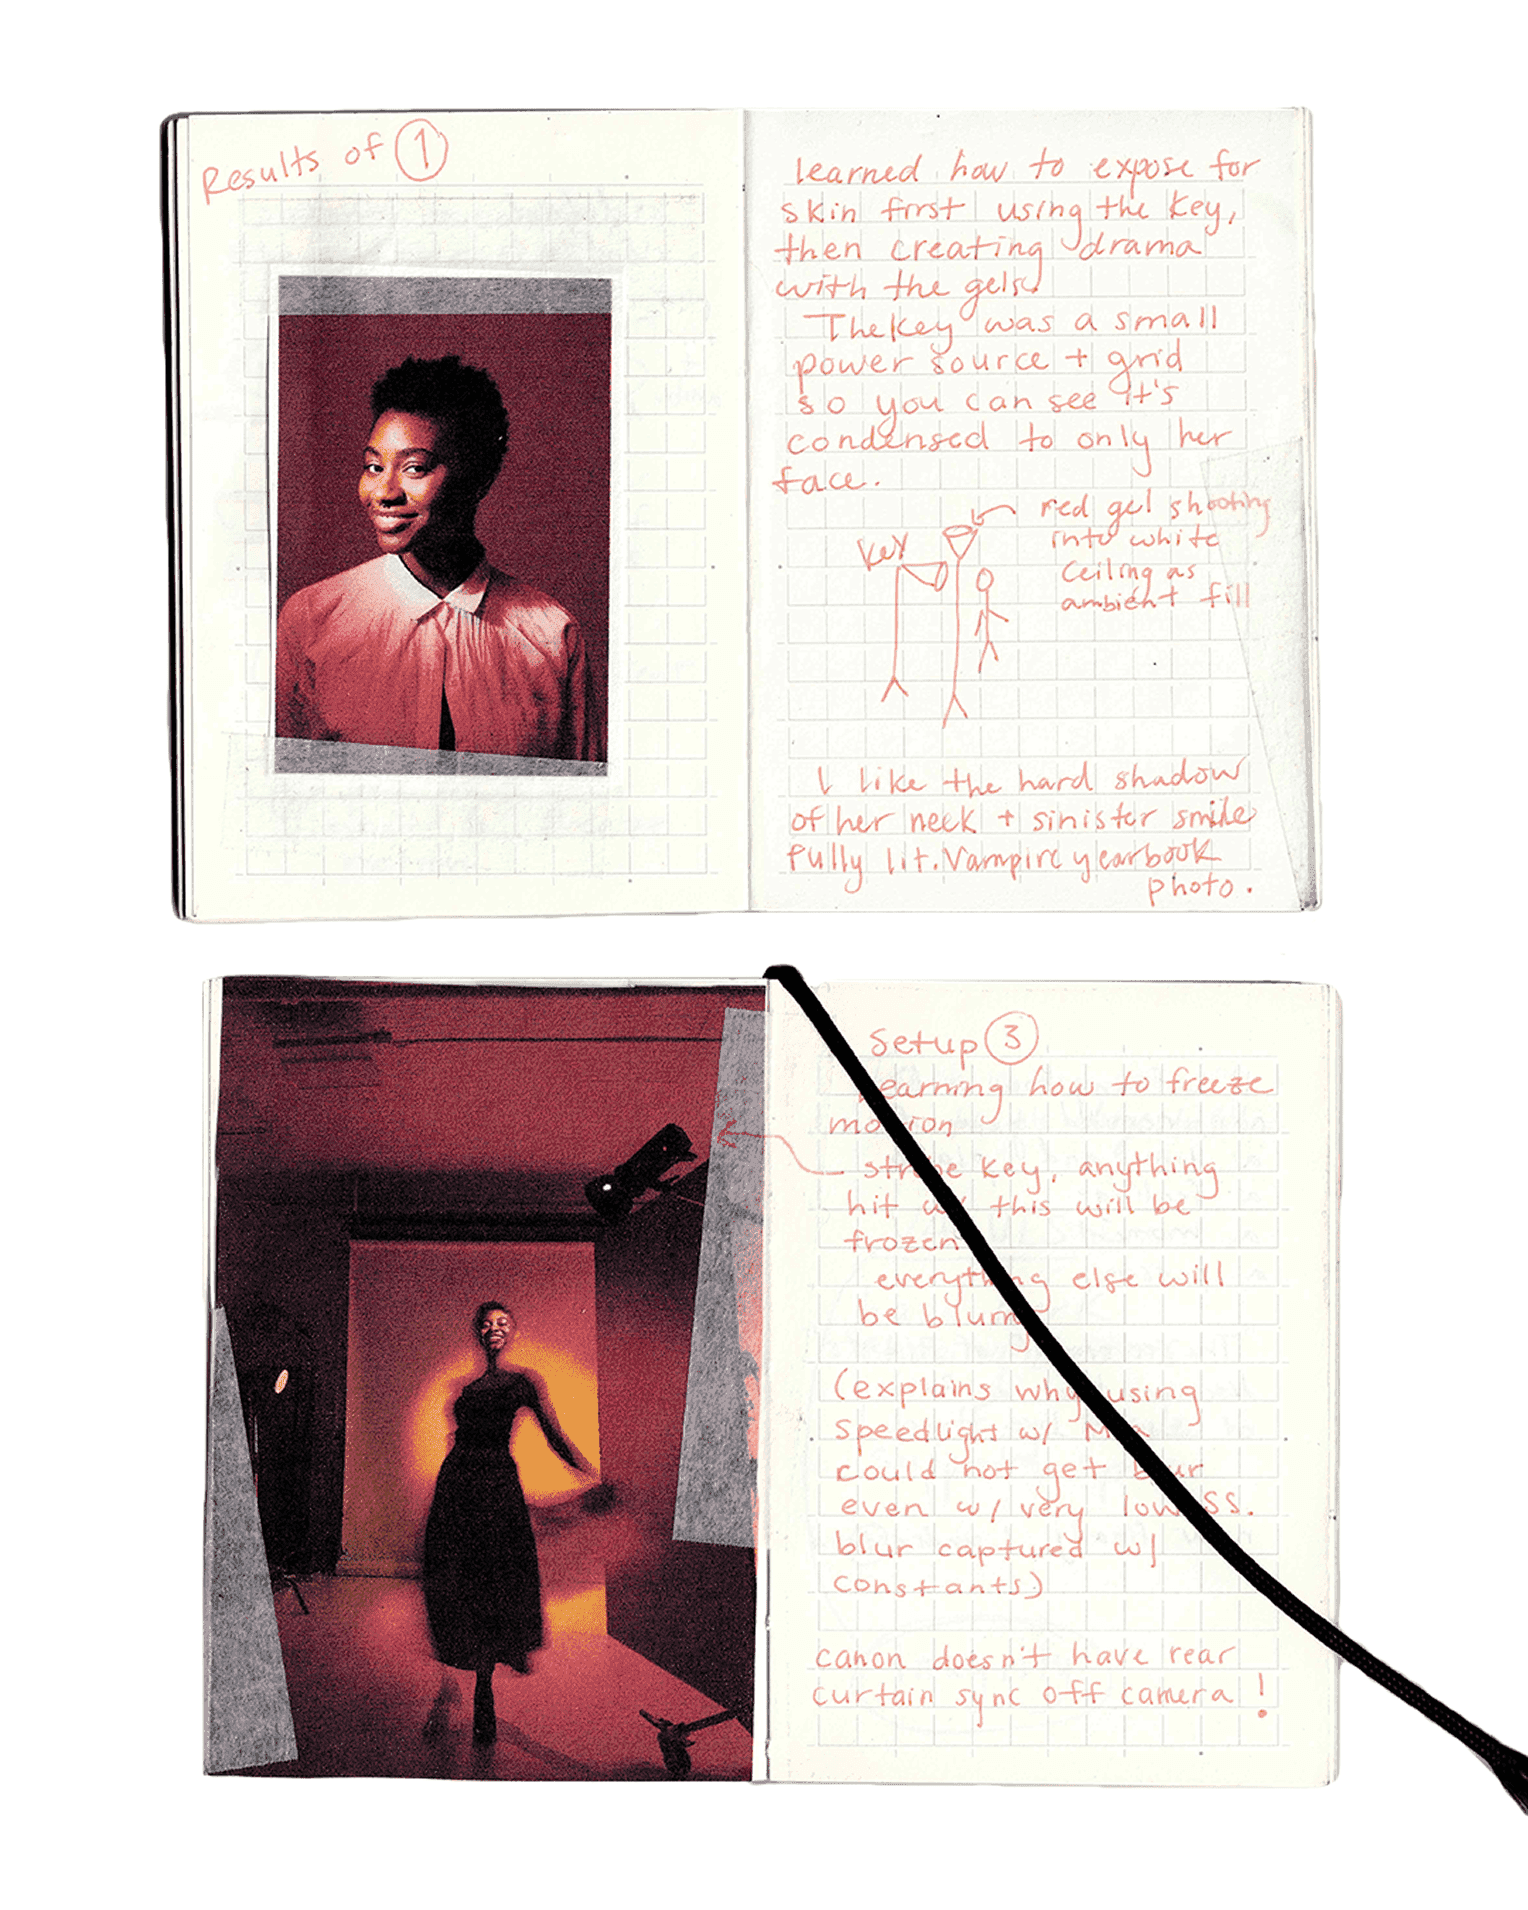 Results of 1
learned how to expose for
skin first using the key,
then creating drama
with the gels.
The key was a small
power source + grid
so you can see it's
condensed to only her
face.
red gel shooting
into white
ceiling as
ambient fill
key
I like the hard shadow
of her neck + sinister smile
fully lit. Vampire yearbook
photo.
Setup 3
learning how to freeze
motion
strobe key, anything
hit w/ this will be
frozen
everything else will
be blurry
(explains why using
speedlight w/
could not get blur
even w/ very low SS.
blur captured w/
constants)
canon doesn't have rear
curtain sync off camera !